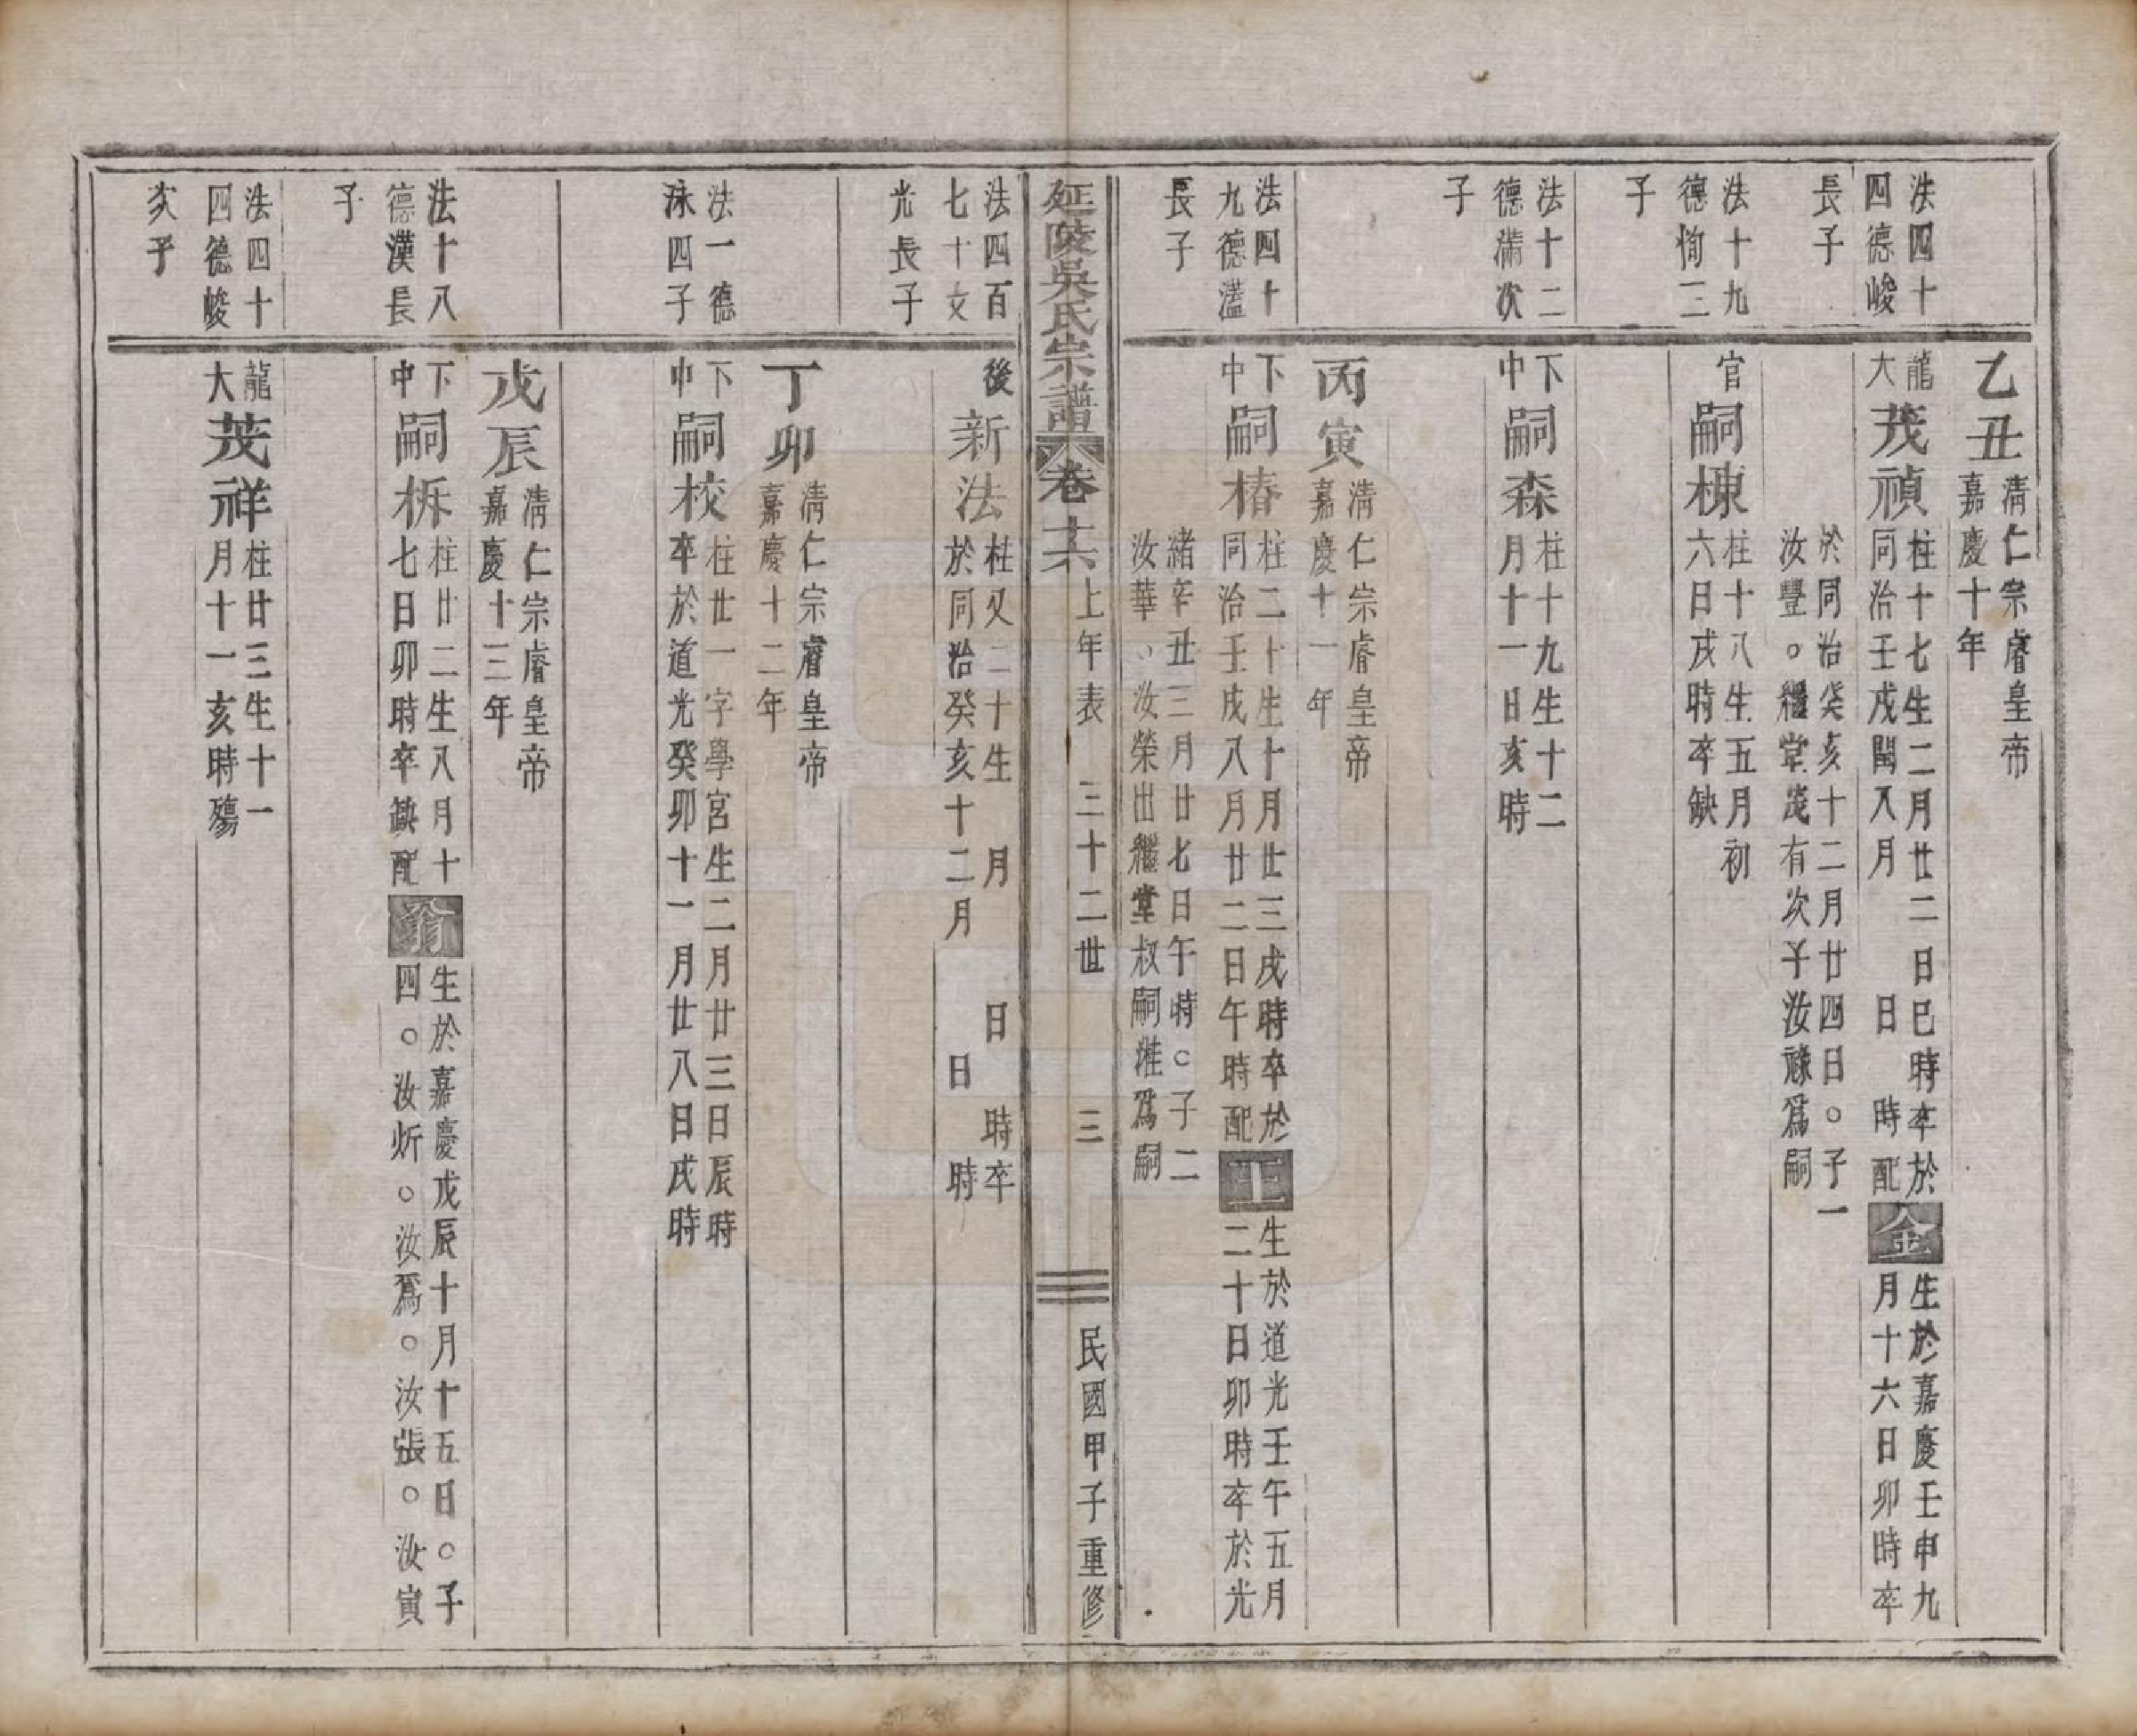 乙丑
清仁宗睿皇帝
嘉慶十年
法四十
四德峻
長子
龍
大
茂禎
柱十七生二月廿二日巳時卒於
同治壬戌閏八月 日 時配
金
生於嘉慶壬申九
月十六日卯時卒
於同治癸亥十二月廿四日○子一
汝豐○繼堂茂有次子汝祿爲嗣
法十九
德恂三
子
官
嗣棟
柱十八生五月初
六日戌時卒缺
法十二
德滿次
子
下
中
嗣森
柱十九生十二
月十一日亥時
丙寅
清仁宗睿皇帝
嘉慶十一年
法四十
九德溢
長子
下
中
嗣椿
柱二十生十月廿三戌時卒於
同治壬戌八月廿二日午時配
王
生於道光壬午五月
二十日卯時卒於光
緒辛丑三月廿七日午時○子二
汝華、汝榮出繼堂叔嗣淮爲嗣
延陵吳氏宗譜
卷十六
上年表 三十二世 三
民國甲子重修
法四百
七十文
光長子
後
新法
柱又二十生 月 日 時卒
於同治癸亥十二月 日 時
丁卯
清仁宗睿皇帝
嘉慶十二年
法一德
泳四子
下
中
嗣校
柱廿一字學宮生二月廿三日辰時
卒於道光癸卯十一月廿八日戌時
戊辰
清仁宗睿皇帝
嘉慶十三年
法十八
德漢長
子
下
中
嗣柝
柱廿二生八月十
七日卯時卒缺配
翁
生於嘉慶戊辰十月十五日○子
四○汝炘○汝爲○汝張○汝寅
法四十
四德峻
次子
龍
大
茂祥
柱廿三生十一
月十一亥時殤